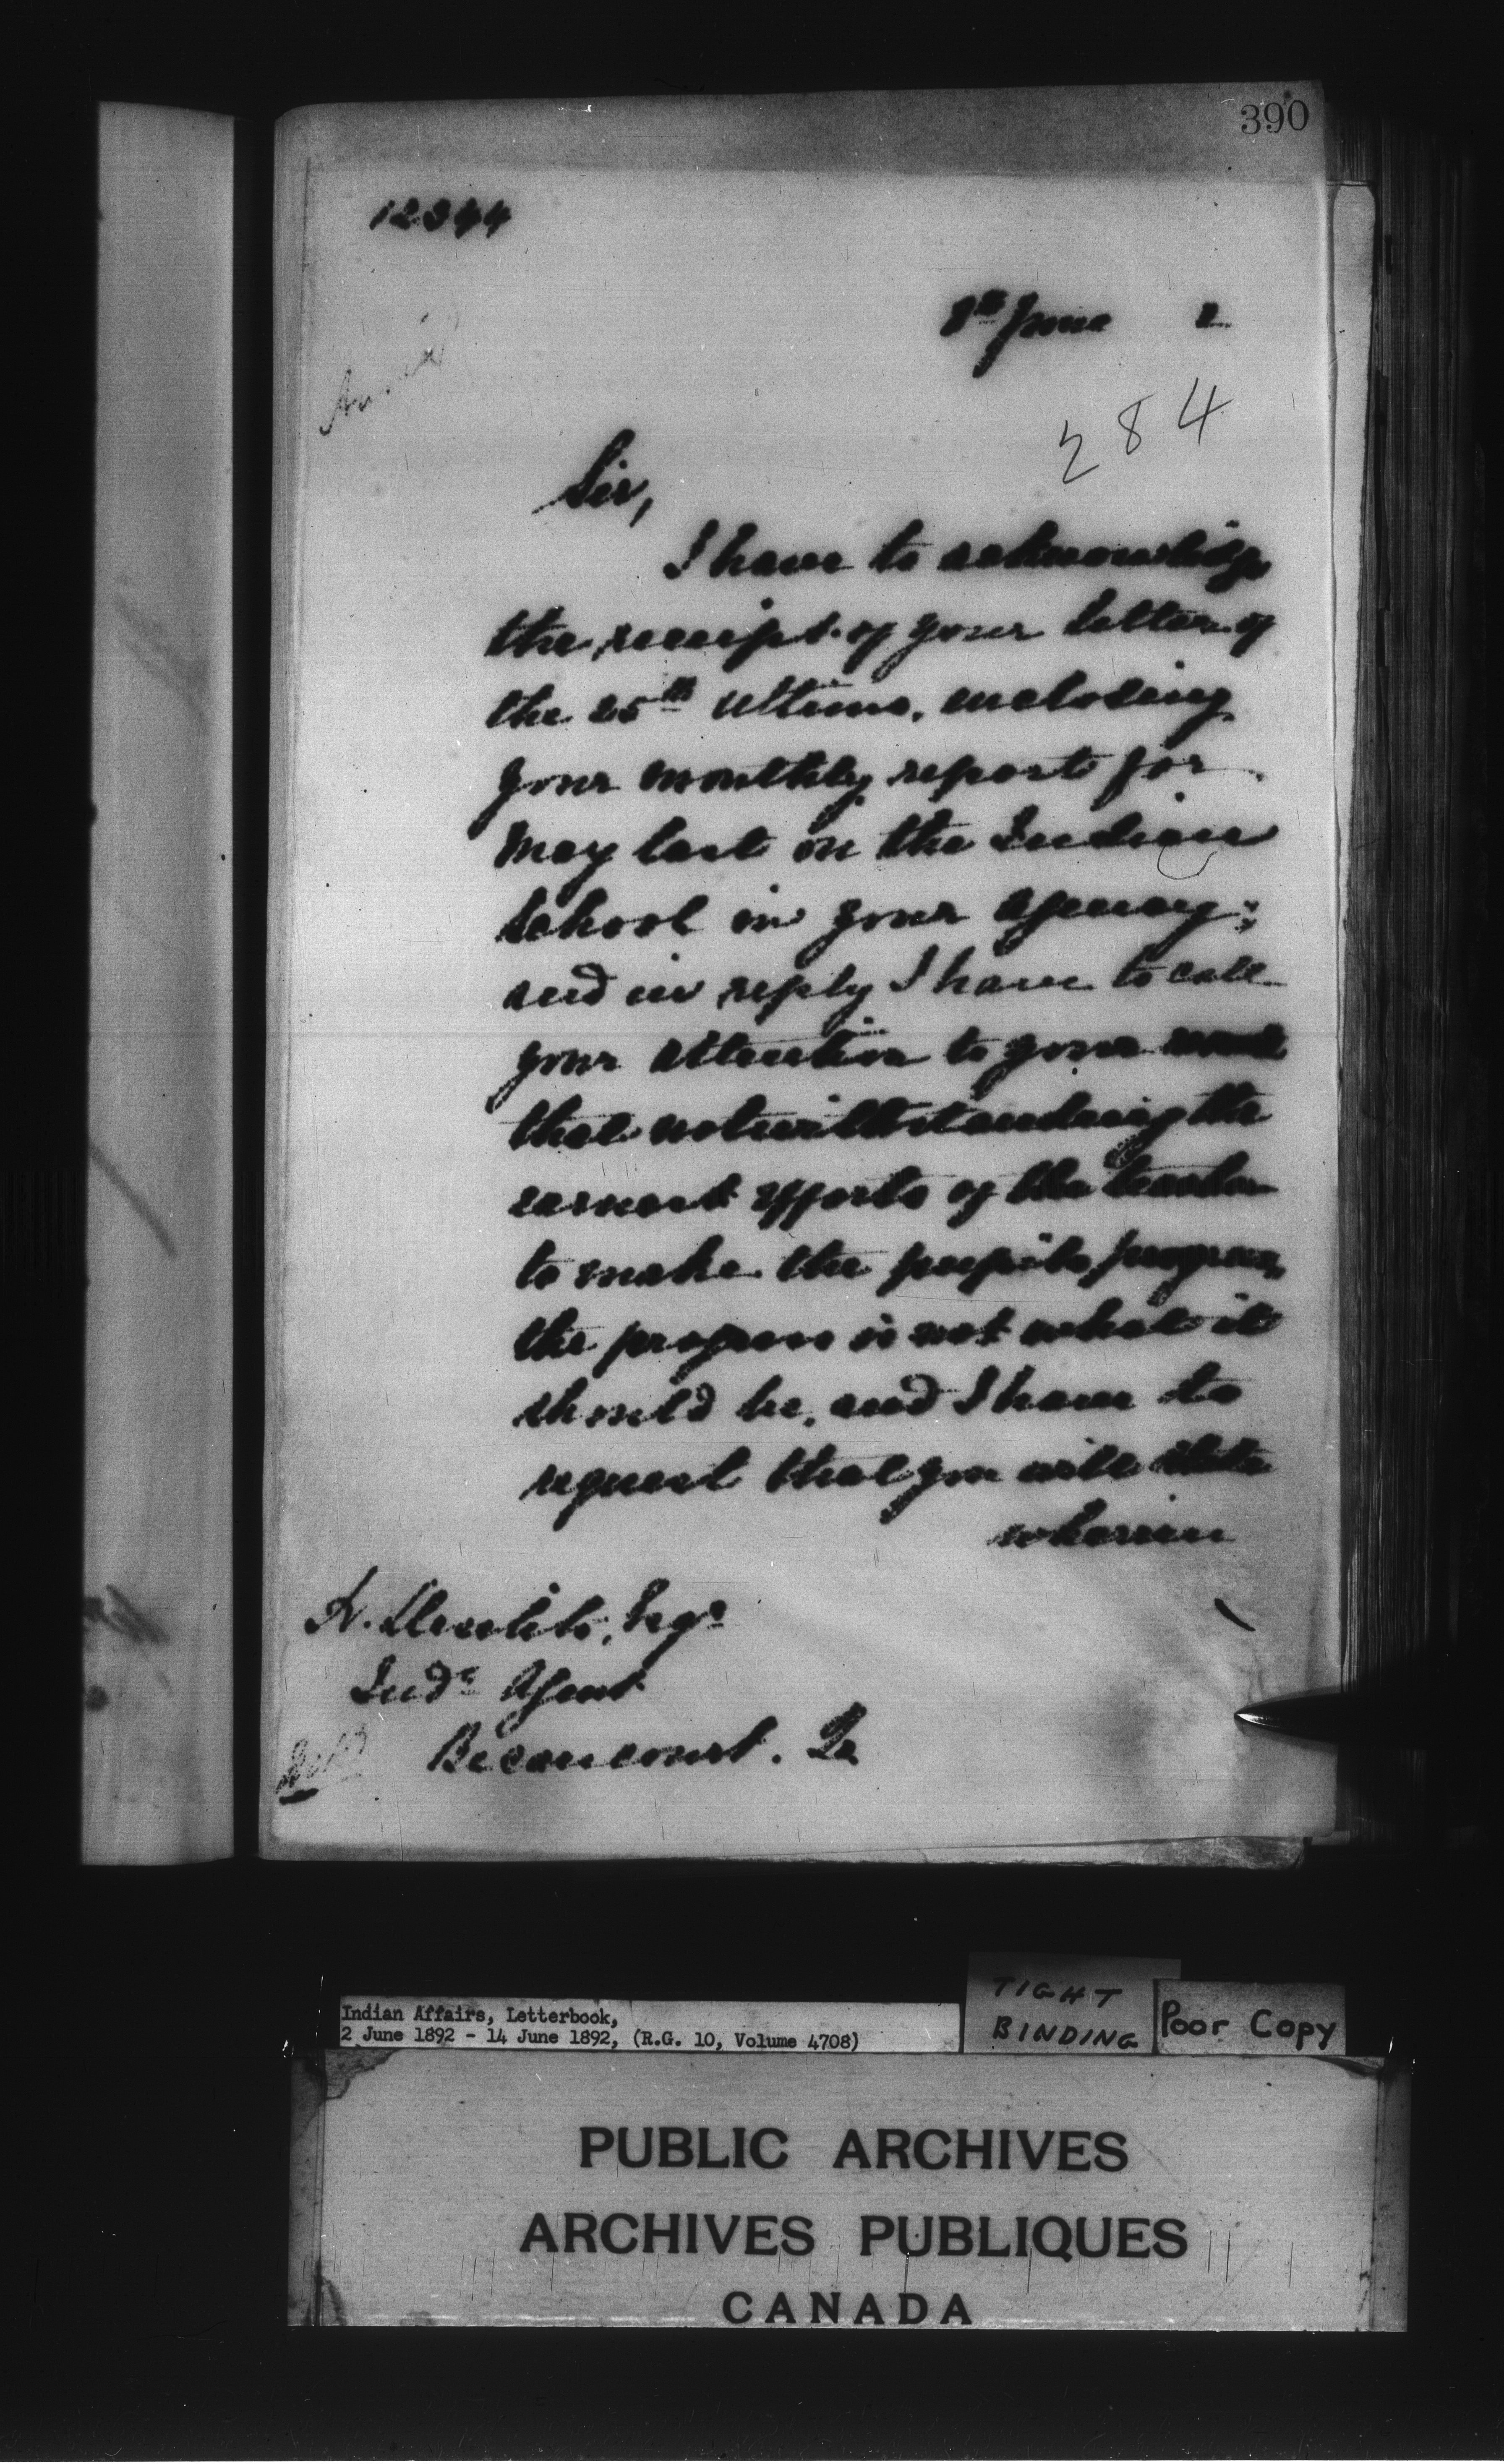 390
12344
8th June 2
284
Sir,
I have to acknowledge
the receipt of your letter of
the 25th Ultimo, enclosing
your monthly report for
May last on the Indian
School in your Agency;
and in reply I have to call
your attention to your
that notwithstanding the
earnest efforts of the teacher
to make the pupils progress,
the progress is not what it
should be, and I have to
request that you will state
wherein
Esqr
Indn Agent
Becancourt. Q
Indian Affairs, Letterbook,
2 June 1892 - 14 June 1892, (R.G. 10, Volume 4708)
TIGHT
BINDING
Poor Copy
PUBLIC ARCHIVES
ARCHIVES PUBLIQUES
CANADA